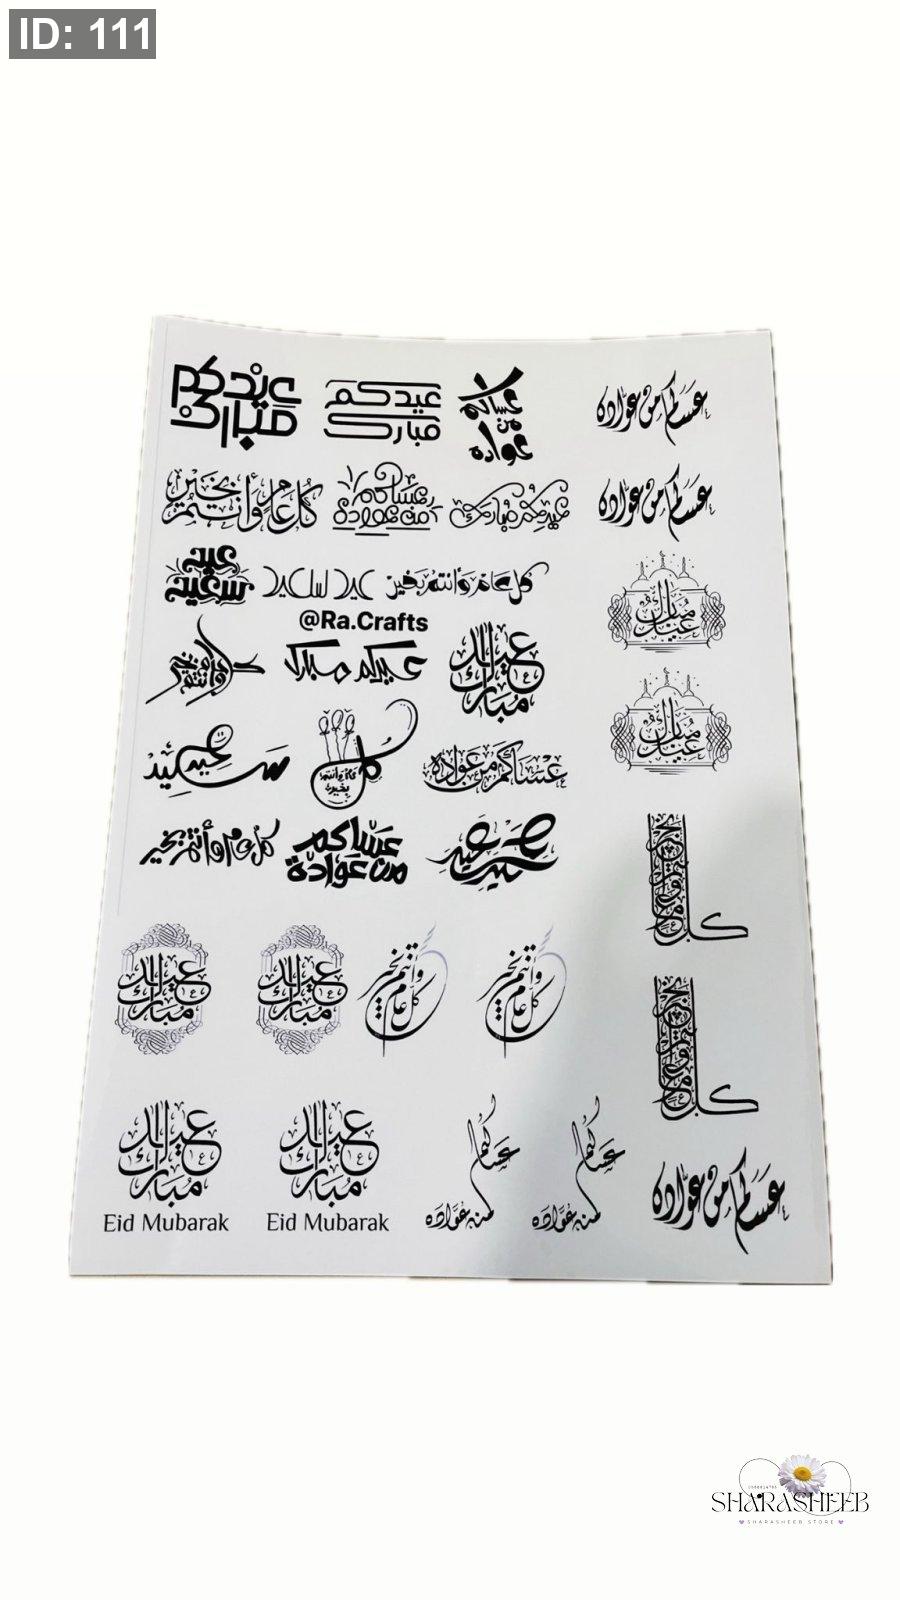 ID: 111
عيدكم مبارك
عيدكم مبارك
عساكم من عواده
عساكم من عواده
كل عام وأنتم بخير
عساكم من عواده
عيدكم مبارك
عساكم من عواده
عيد سعيد
عيد سعيد
كل عام وأنتم بخير
عيد مبارك
@Ra.Crafts
كل عام وأنتم بخير
عيدكم مبارك
عيد مبارك
عيد مبارك
عيد سعيد
كل عام وانتم بخير
عساكم من عواده
كل عام وأنتم بخير
عساكم من عواده
عيد سعيد
كل عام وأنتم بخير
عيد مبارك
عيد مبارك
كل عام وأنتم بخير
كل عام وأنتم بخير
كل عام وأنتم بخير
عيد مبارك
Eid Mubarak
عيد مبارك
Eid Mubarak
عساكم من عواده
عساكم من عواده
عساكم من عواده
SHARASHEEB
SHARASHEEB STORE